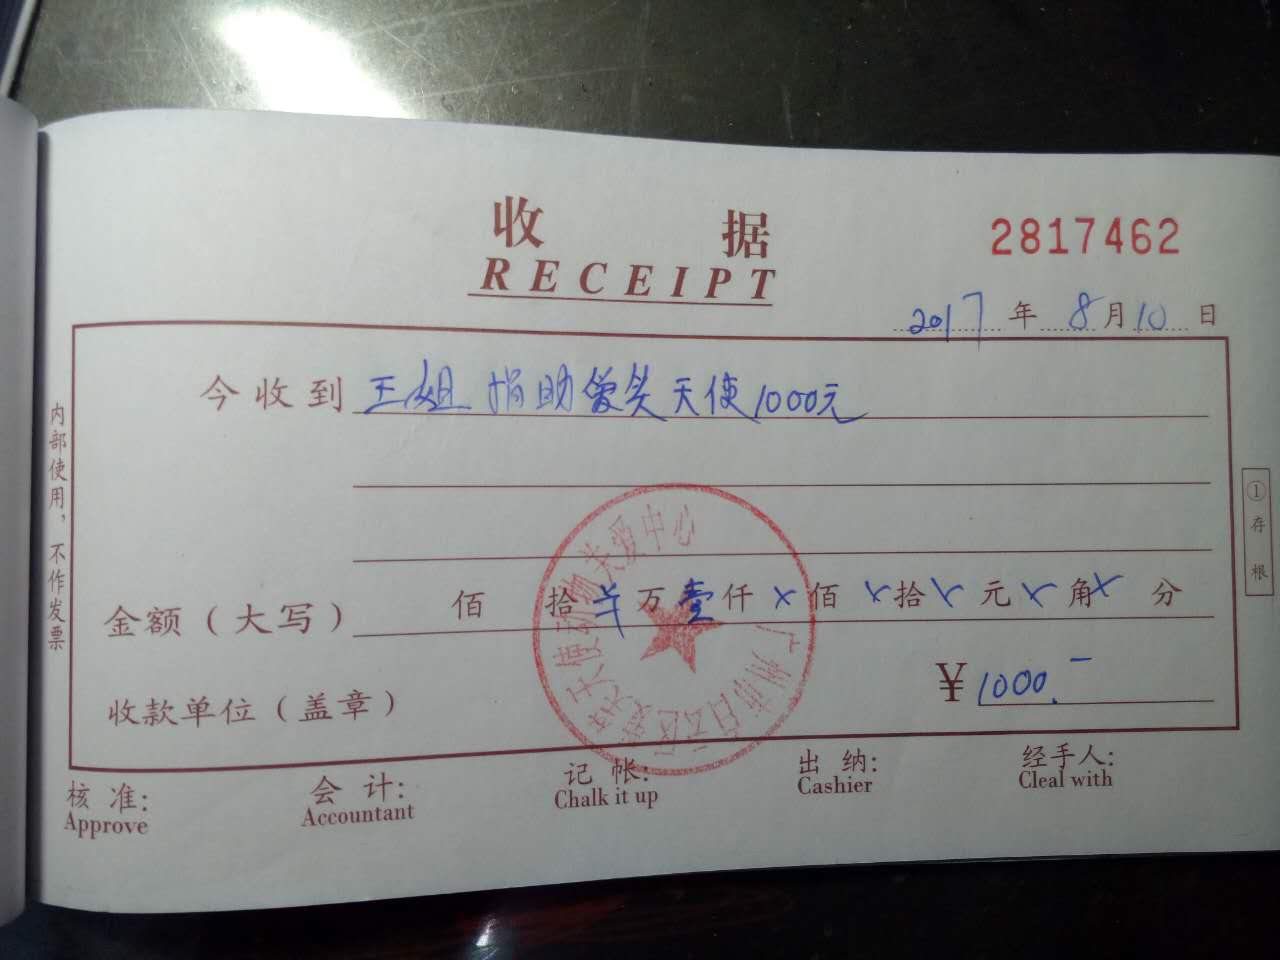 收 据
RECEIPT
2817462
2017年 8月10日
今收到 王姐 捐助爱笑天使1000元
金额（大写） 佰 拾 万壹仟 x 佰 x 拾 x 元 x 角 x 分
收款单位（盖章） ¥ 1000.-
广州市白云区爱笑天使动物关爱中心
核 准: 会 计: 记 帐: 出 纳: 经手人:
Approve Accountant Chalk it up Cashier Cleal with
内部使用，不作发票
① 存 根